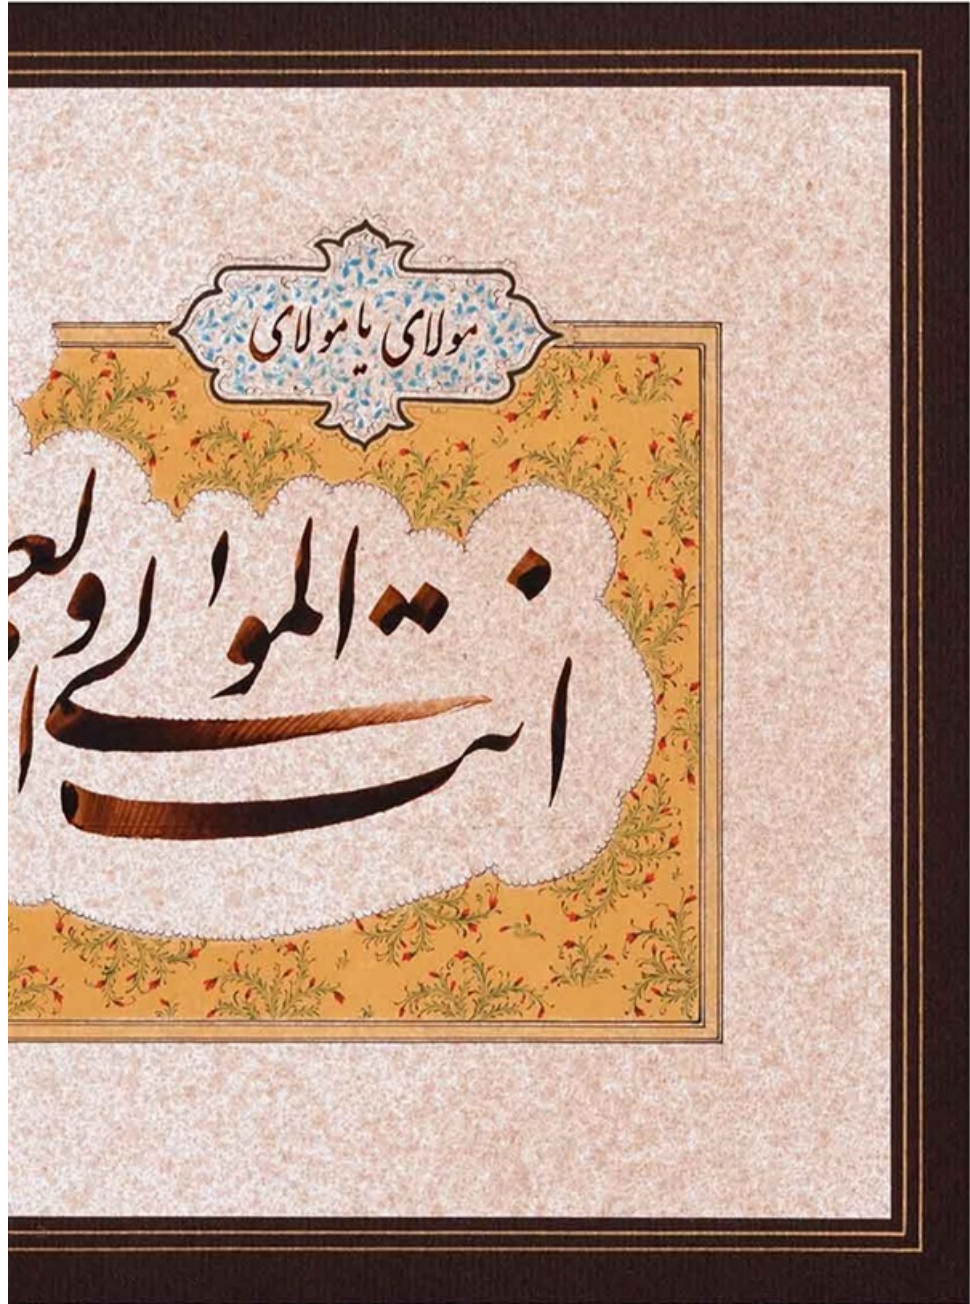 مولای یا مولای
انت المولی و